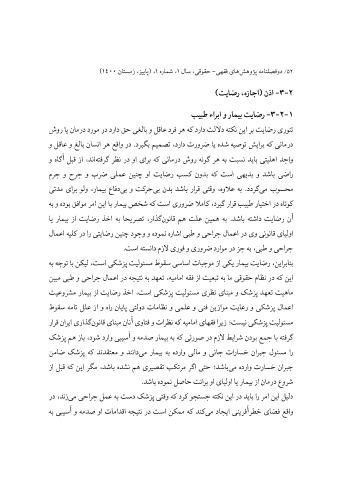 ۵۲/ دوفصلنامه پژوهش‌های فقهی- حقوقی، سال ۱، شماره ۱، (پاییز، زمستان ۱۴۰۰)
۲-۳- اذن (اجازه، رضایت)
۱-۲-۳- رضایت بیمار و ابراء طبیب
تئوری رضایت بر این نکته دلالت دارد که هر فرد عاقل و بالغی حق دارد در مورد درمان یا روش
درمانی که برایش توصیه شده یا ضرورت دارد، تصمیم بگیرد. در واقع هر انسان بالغ و عاقل و
واجد اهلیتی باید نسبت به هر گونه روش درمانی که برای او در نظر گرفته‌اند، از قبل آگاه و
راضی باشد و بدیهی است که بدون کسب رضایت او چنین عملی ضرب و جرح و جرم
محسوب می‌گردد. به علاوه، وقتی قرار باشد بدن بی‌حرکت و بی‌دفاع بیمار، ولو برای مدتی
کوتاه در اختیار طبیب قرار گیرد، کاملا ضروری است که شخص بیمار با این امر موافق بوده و به
آن رضایت داشته باشد. به همین علت هم قانون‌گذار، تصریحا به اخذ رضایت از بیمار یا
اولیای قانونی وی در اعمال جراحی و طبی اشاره نموده و وجود چنین رضایتی را در کلیه اعمال
جراحی و طبی، به جز در موارد ضروری و فوری لازم دانسته است.
بنابراین، رضایت بیمار یکی از موجبات اساسی سقوط مسئولیت پزشکی است، لیکن با توجه به
این که در نظام حقوقی ما به تبعیت از فقه امامیه، تعهد به نتیجه در اعمال جراحی و طبی مبین
ماهیت تعهد پزشک و مبنای نظری مسئولیت پزشکی است، اخذ رضایت از بیمار مشروعیت
اعمال پزشکی و رعایت موازین فنی و علمی و نظامات دولتی پایان راه و از علل تامه سقوط
مسئولیت پزشکی نیست؛ زیرا فقهای امامیه که نظرات و فتاوی آنان مبنای قانون‌گذاری ایران قرار
گرفته با جمع بودن شرایط لازم در صورتی که به بیمار صدمه و آسیبی وارد شود، باز هم پزشک
را مسئول جبران خسارات جانی و مالی وارده به بیمار می‌دانند و معتقدند که پزشک ضامن
جبران خسارت وارده می‌باشد؛ حتی اگر مرتکب تقصیری هم نشده باشد، مگر این که قبل از
شروع درمان از بیمار یا اولیای او برائت حاصل نموده باشد.
دلیل این امر را باید در این نکته جستجو کرد که وقتی پزشک دست به عمل جراحی می‌زند، در
واقع فضای خطرآفرینی ایجاد می‌کند که ممکن است در نتیجه اقدامات او صدمه و آسیبی به